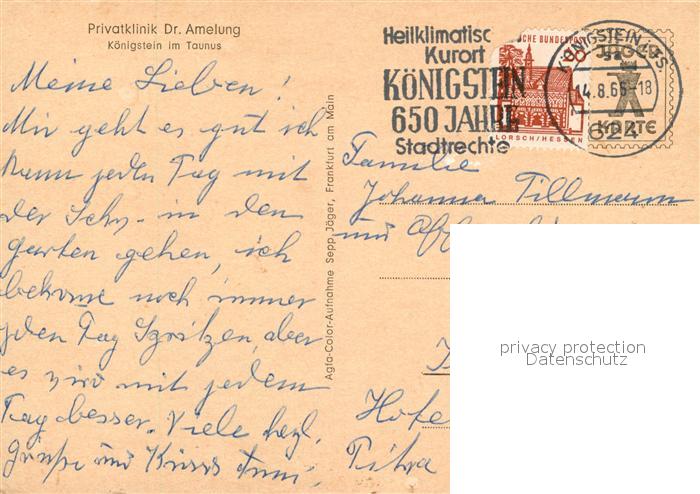 Privatklinik Dr. Amelung
Königstein im Taunus
Heilklimatisc
Kurort
KÖNIGSTEIN
650 JAHRE
Stadtrechte
CHE BUNDESPOST
LORSCH/HESSEN
KÖNIGSTEIN TS.
14.8.66-18
624
KARTE
Meine Lieben!
Mir geht es gut ich
kann jeden Tag mit
der Schw. in den
garten gehen, ich
bekome noch immer
jeden Tag Spritzen, aber
es wird mit jedem
Tag besser. Viele herzl.
grüße und Küsse
Agfa-Color-Aufnahme Sepp Jäger, Frankfurt am Main
Familie
Johanna Tillmann
und
Hote
privacy protection
Datenschutz